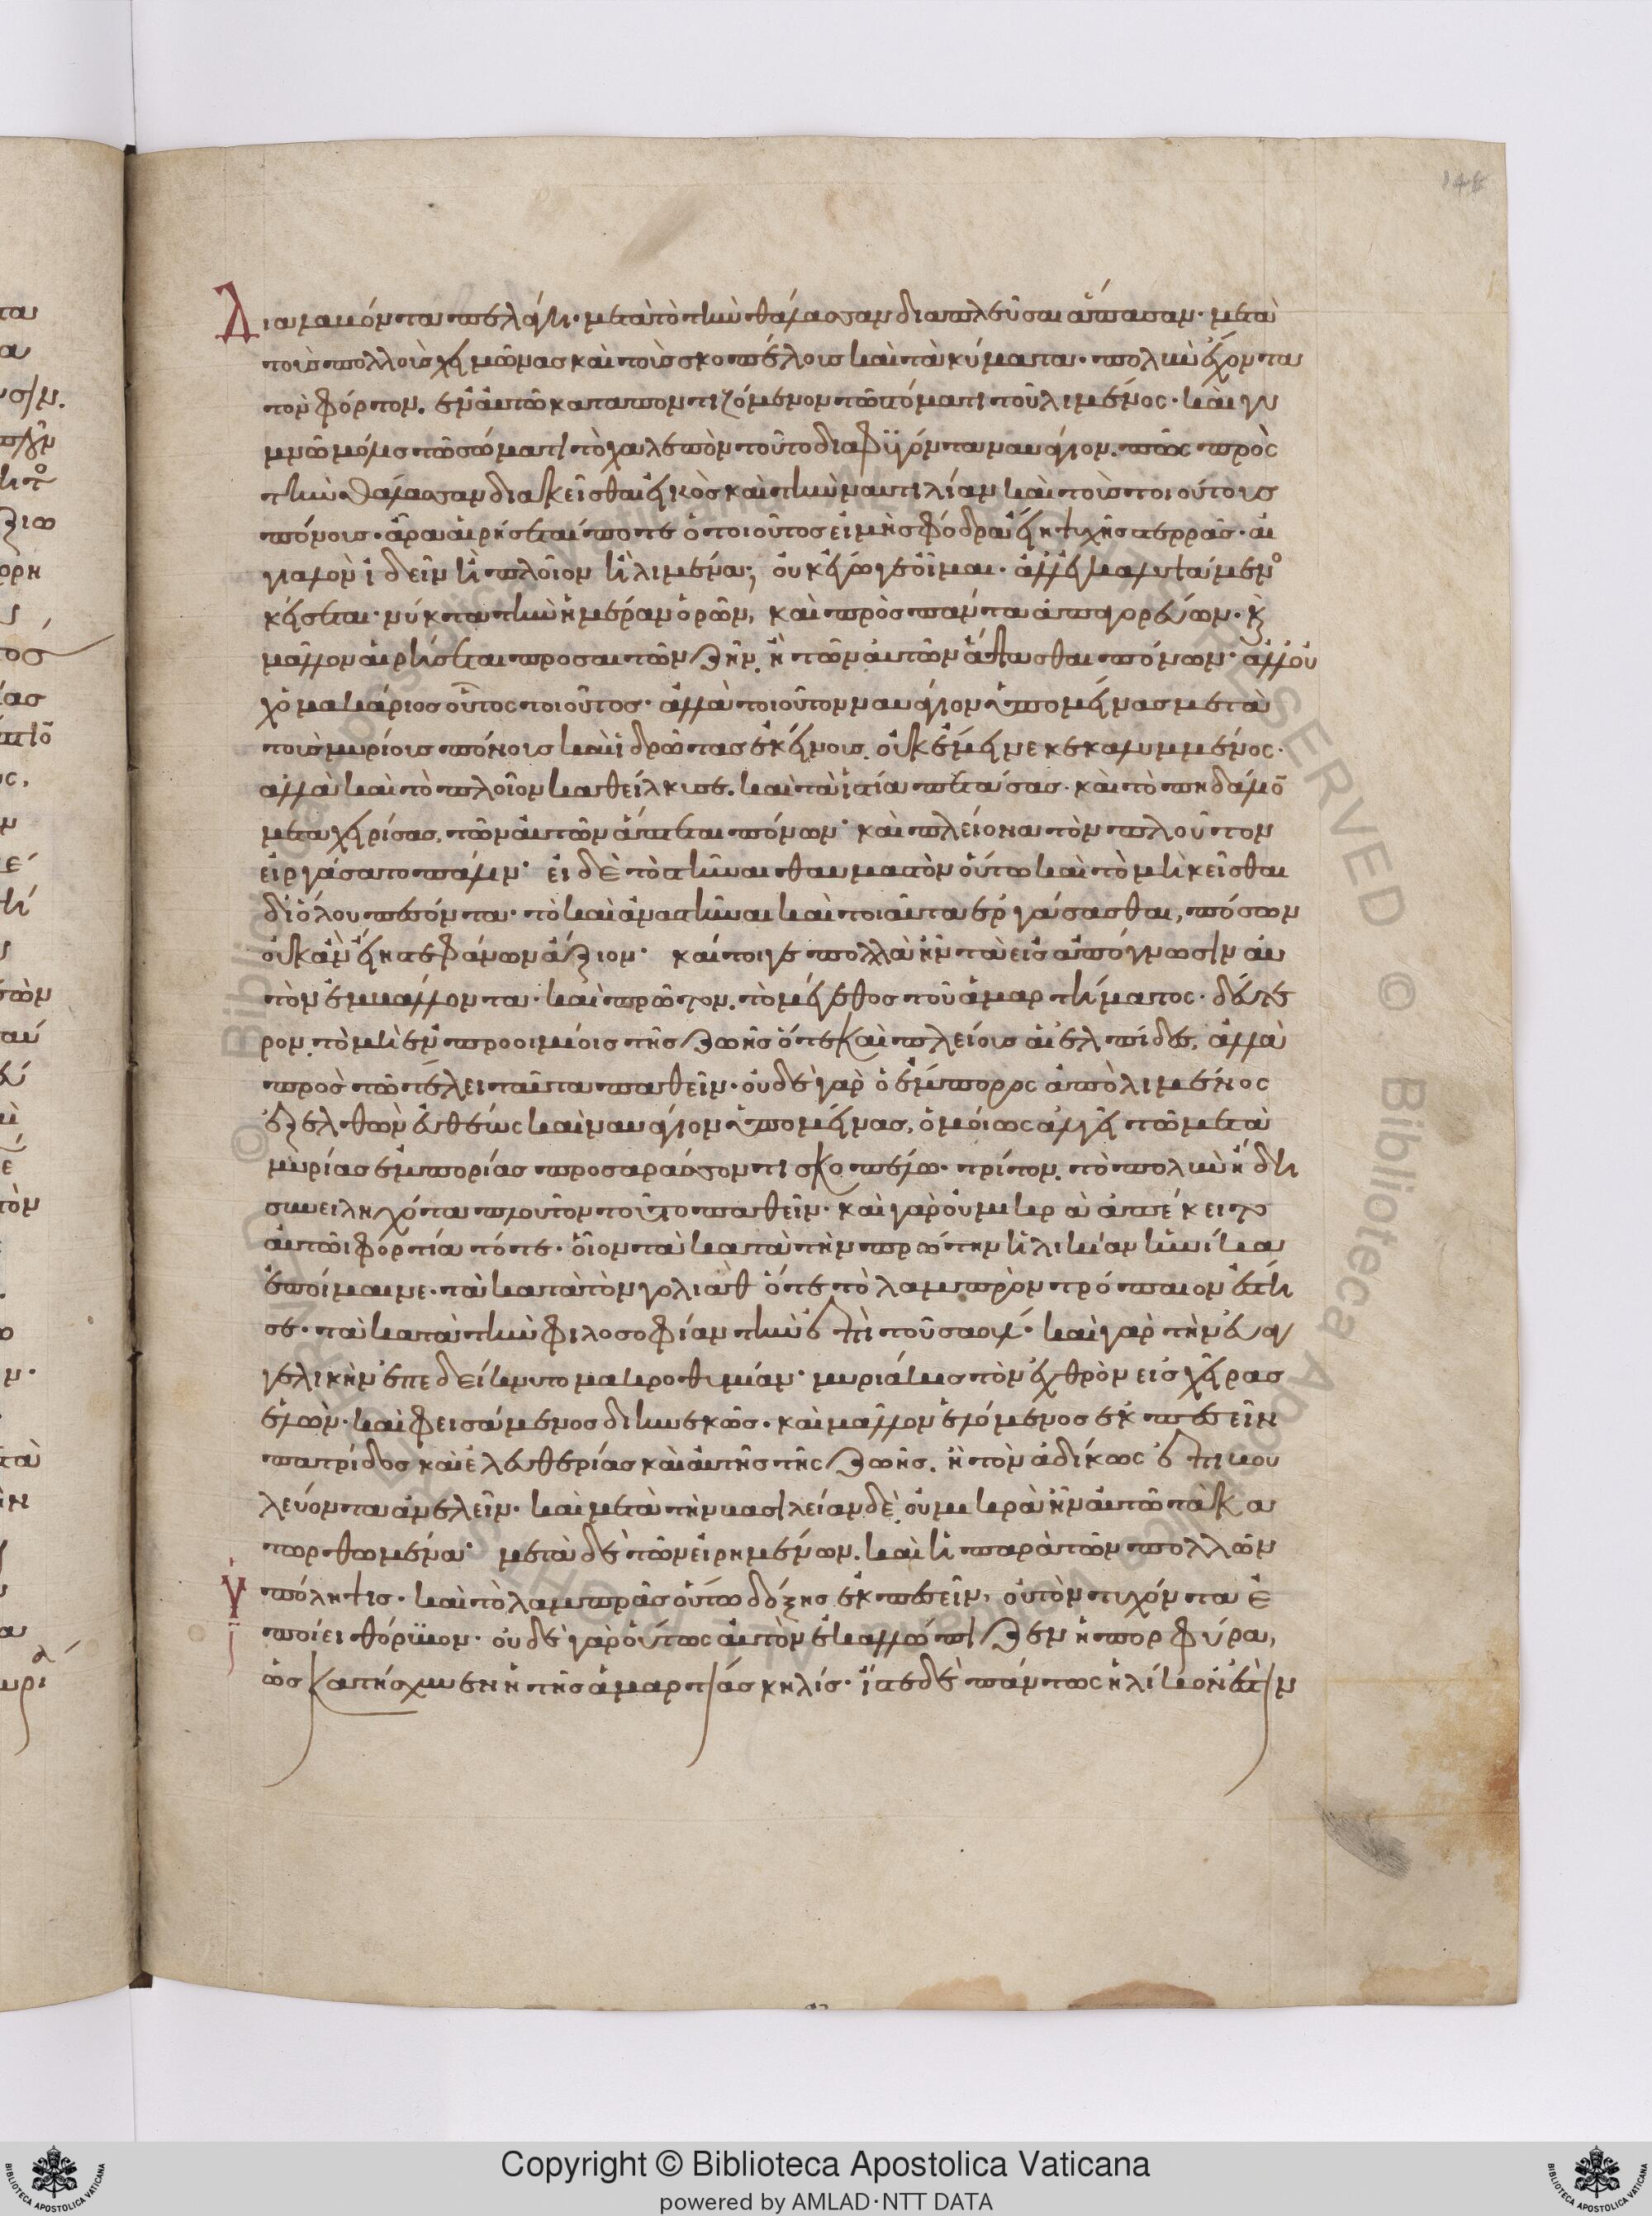 Διαλαβόντα πελάγη· μετὰ τὸ τὴν θάλασσαν διαπλεῦσαι ἅπασαν· μετὰ
τοὺς πολλοὺς χειμῶνας καὶ τοὺς σκοπέλους καὶ τὰ κύματα· πολὺν ἔχοντα
τὸν φόρτον. ἐν αὐτῶ καταποντιζόμενον τῶ στόματι τοῦ λιμένος· καὶ γυ
μνῶ μόλις τῶ σώματι τὸ χαλεπὸν τοῦτο διαφϋγόντα ναυάγιον. πῶς πρὸς
τὴν θάλασσαν διακεῖσθαι εἰκὸς καὶ τὴν ναυτιλίαν καὶ τοὺς τοιούτους
πόνους· ἆρα αἱρήσεταί ποτε ὁ τοιοῦτος εἰ μὴ σφόδρα εἴη ψυχῆς στερρᾶς· αἰ
γιαλὸν ἰδεῖν ἢ πλοῖον ἢ λιμένα; οὐκ ἔγωγε οἶμαι· ἀλλ' ἐγκαλυψάμενο
κείσεται· νύκτα τὴν ἡμέραν ὁρῶν, καὶ πρὸς πάντα ἀπαγορεύων· ϗ
μᾶλλον αἱρήσεται προσαιτῶν ζῆν, ἢ τῶν αὐτῶν ἅψασθαι πόνων· ἀλλ' οὐ
χ ὁ μακάριος οὗτος τοιοῦτος· ἀλλὰ τοιοῦτον ναυάγιον ὑπομείνας μετὰ
τοὺς μυρίους πόνους καὶ ἱδρῶτας ἐκείνους. οὐκ ἔμεινε κεκαλυμμένος·
ἀλλὰ καὶ τὸ πλοῖον καθείλκυσε. καὶ τὰ ἱστία πετάσας· καὶ τὸ πηδάλιον
μεταχειρίσας, τῶν αὐτῶν ἅπτεται πόνων· καὶ πλείονα τὸν πλοῦτον
εἰργάσατο πάλιν· εἰ δὲ τὸ στῆναι θαυμαστὸν οὕτω καὶ τὸ μὴ κεῖσθαι
δι' ὅλου πεσόντα· τὸ καὶ ἀναστῆναι καὶ τοιαῦτα ἐργάσασθαι, πόσων
οὐκ ἂν εἴη στεφάνων ἄξιον· καίτοιγε πολλὰ ἦν τὰ εἰς ἀπόγνωσιν αὐ
τὸν ἐμβάλλοντα· καὶ πρῶτον. τὸ μέγεθος τοῦ ἁμαρτήματος· δεύτε
ρον. τὸ μὴ ἐν προοιμίοις τῆς ζωῆς ὅτε καὶ πλείους αἱ ἐλπίδες, ἀλλὰ
πρὸς τῶ τέλει ταῦτα παθεῖν· οὐδὲ γὰρ ὁ ἔμπορος ἀπὸ λιμένος
ἐξελθὼν εὐθέως καὶ ναυάγιον ὑπομείνας, ὁμοίως ἀλγεῖ τῶ μετὰ
μυρίας ἐμπορίας προσαράσσοντι σκοπέλω· τρίτον. τὸ πολὺν ἤδη
συνειληχότα πλοῦτον τοῦτο παθεῖν· καὶ γὰρ οὐ μικρὰ ἀπέκειτο
αὐτῶι φορτία τότε· οἷον τὰ κατὰ τὴν πρώτην ἡλικίαν ἡνίκα
ἐποίμαινε· τὰ κατὰ τὸν γολιὰθ ὅτε τὸ λαμπρὸν τρόπαιον ἔστη
σε· τὰ κατὰ τὴν φιλοσοφίαν τὴν ἐπὶ τοῦ σαούλ· καὶ γὰρ τὴν εὐαγ
γελικὴν ἐπεδείκνυτο μακροθυμίαν· μυριάκις τὸν ἐχθρὸν εἰς χεῖρας
ἑλὼν· καὶ φεισάμενος διηνεκῶς· καὶ μᾶλλον ἑλόμενος ἐκπεσεῖν
πατρίδος καὶ ἐλευθερίας καὶ αὐτῆς τῆς ζωῆς. ἢ τὸν ἀδίκως ἐπιβου
λεύοντα ἀνελεῖν· καὶ μετὰ τὴν βασιλείαν δὲ, οὐ μικρὰ ἦν αὐτῶ τὰ κα
τορθωμένα· μετὰ δὲ τῶν εἰρημένων. καὶ ἡ παρὰ τῶν πολλῶν
ὑπόληψις· καὶ τὸ λαμπρᾶς οὕτω δόξης ἐκπεσεῖν, οὐ τὸν τυχόντα ἐ
ποίει θόρυβον· οὐδὲ γὰρ οὕτως αὐτὸν ἐκαλλώπιζεν ἡ πορφύρα,
ὡς κατήσχυνεν ἡ τῆς ἁμαρτίας κηλίς· ἴστε δὲ πάντως ἡλίκον ἐστὶν
Copyright © Biblioteca Apostolica Vaticana
powered by AMLAD·NTT DATA